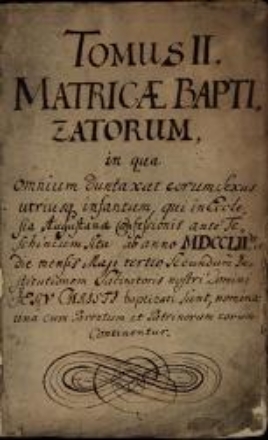 TOMUS II.
MATRICÆ BAPTI,
ZATORUM,
in qua
Omnium duntaxat eorum sexus
utriusq, infantum, qui in Eccle,
sia Augustanæ Confessionis ante Te,
schinium sita ab anno MDCCLII
die mensis Maji tertio secundum In
stitutionem Salvatoris nostri Domini
JESU CHRISTI baptizati sunt, nomina
una cum Parentum et Patrinorum eorum
Continentur.